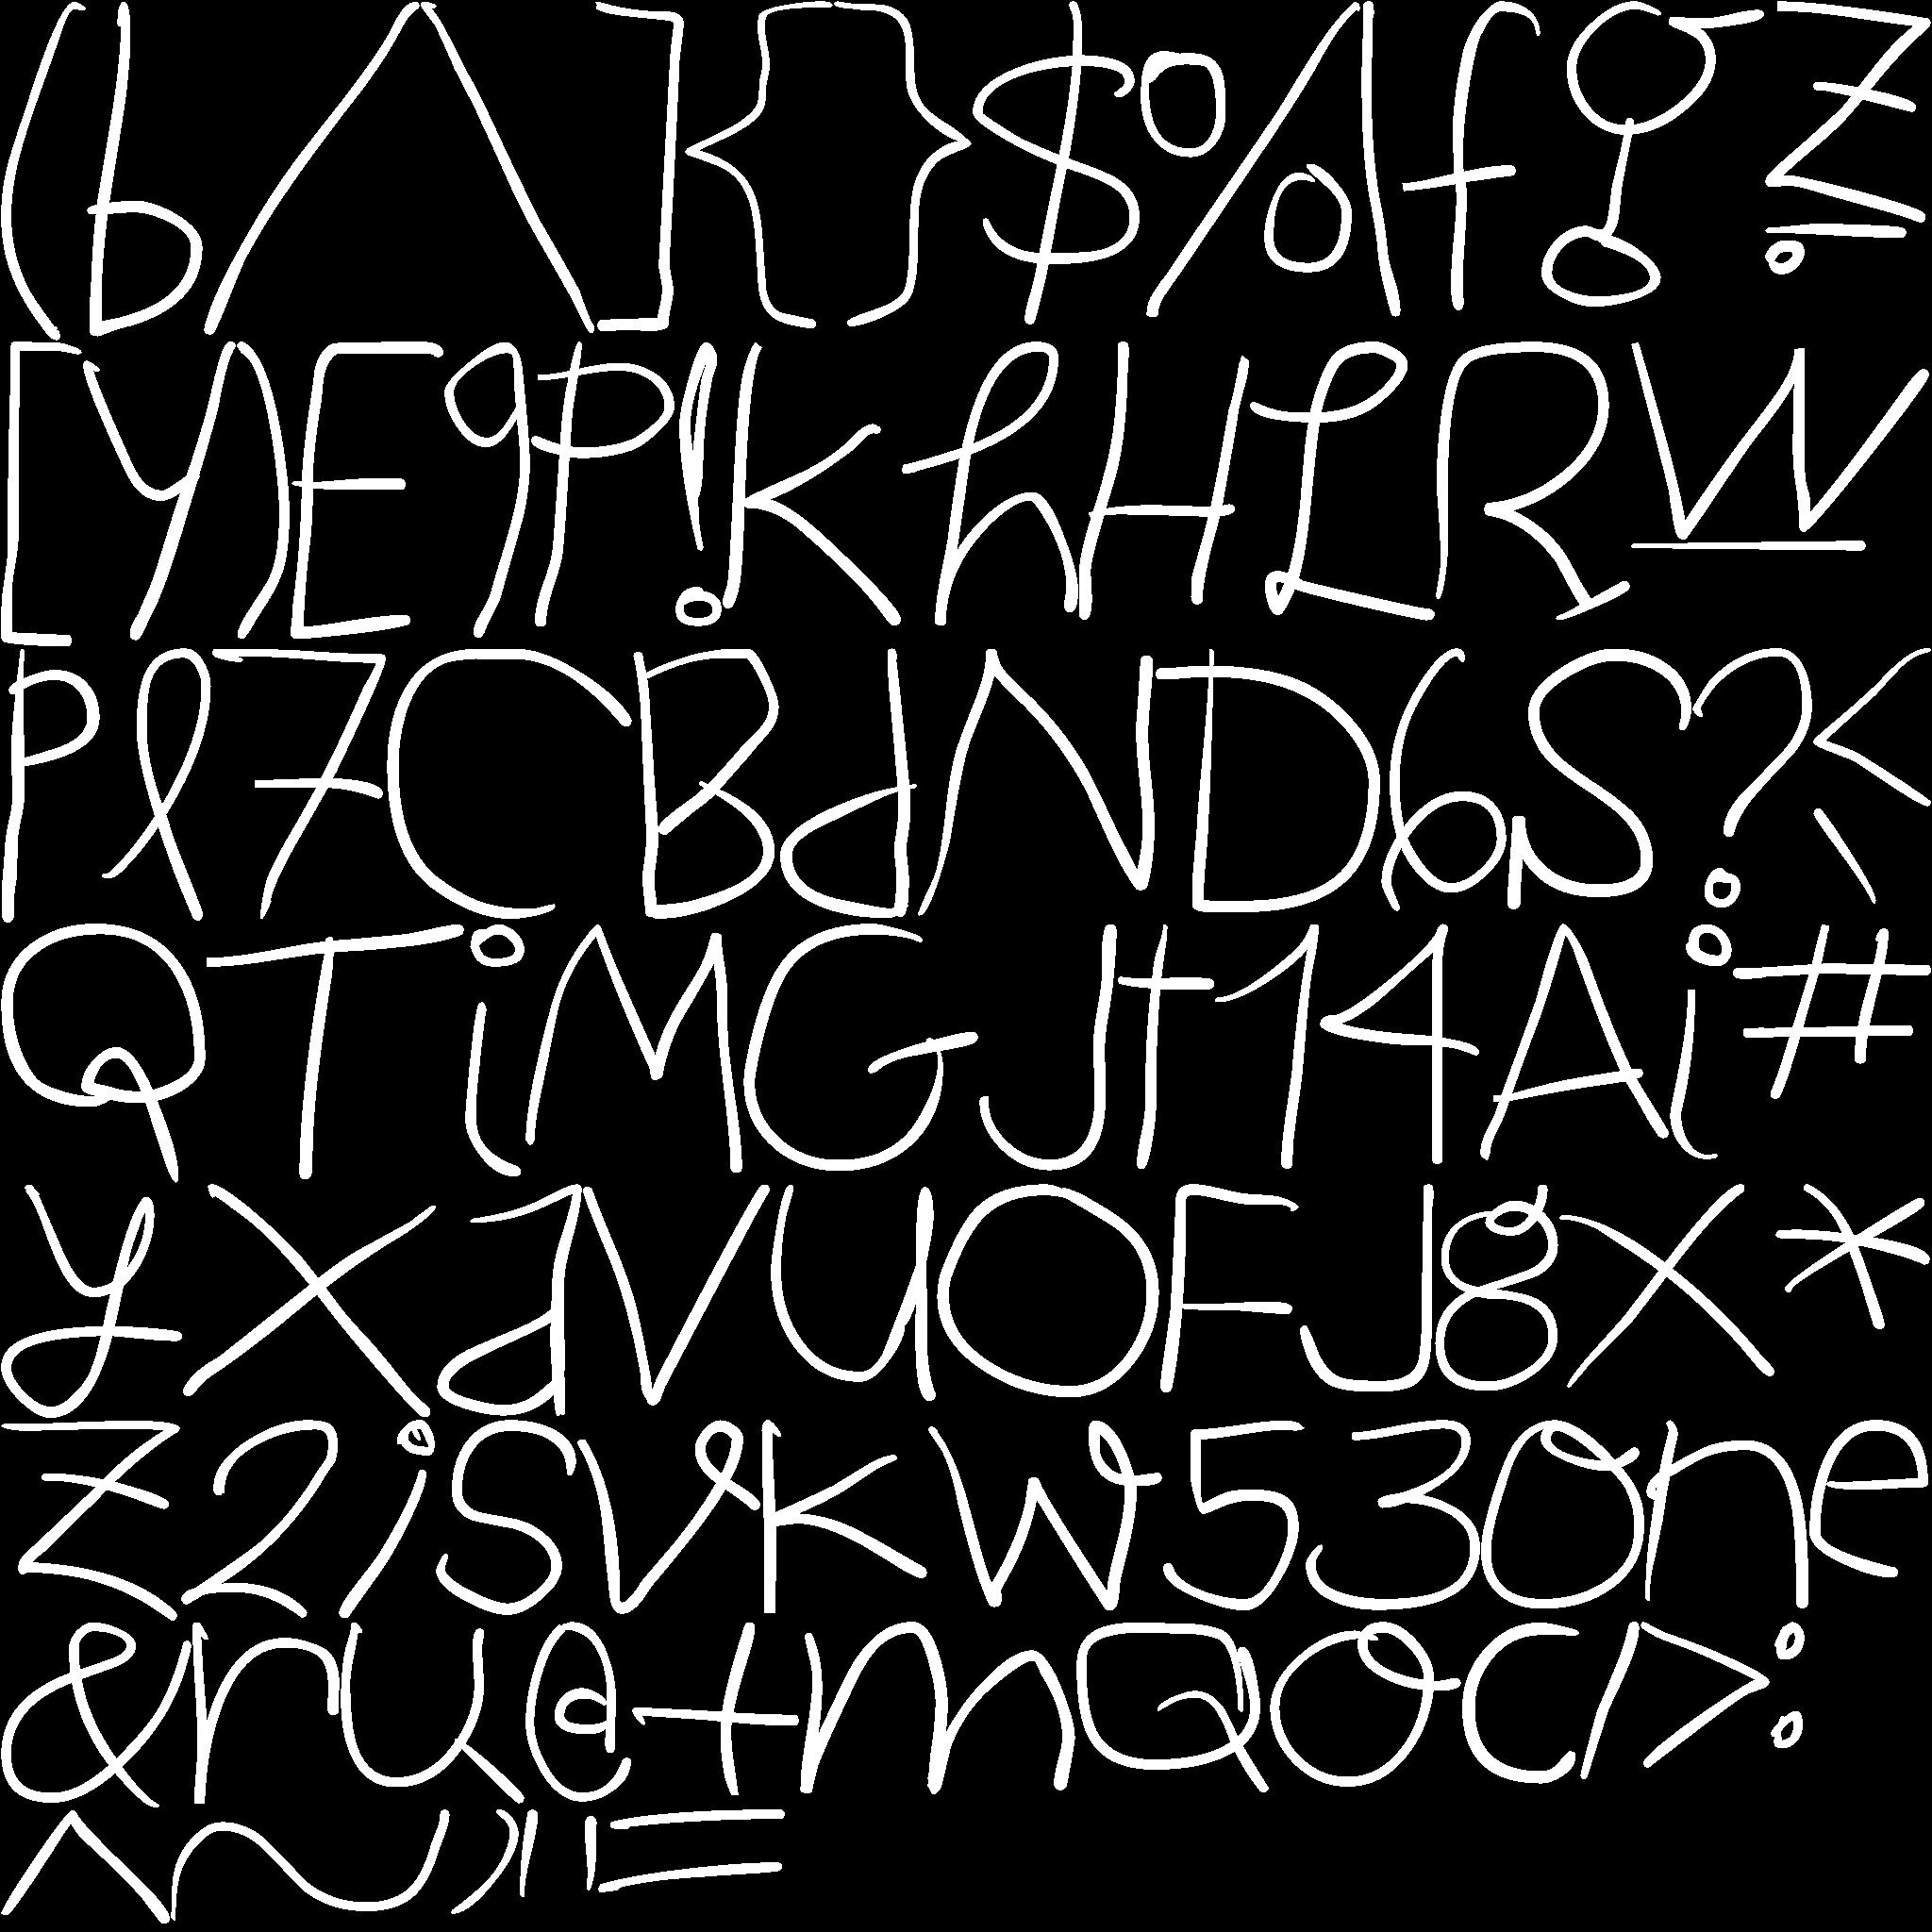 (b/\]{}$%\fgZ_.
[y)E9P!KhHLRW_
pl7CBdND6S?<
QTiMGJt14Ai#
yXaVUOFJ8x*
z2jsvkw530ne
&ru@+mQoc/>:
^~,"=